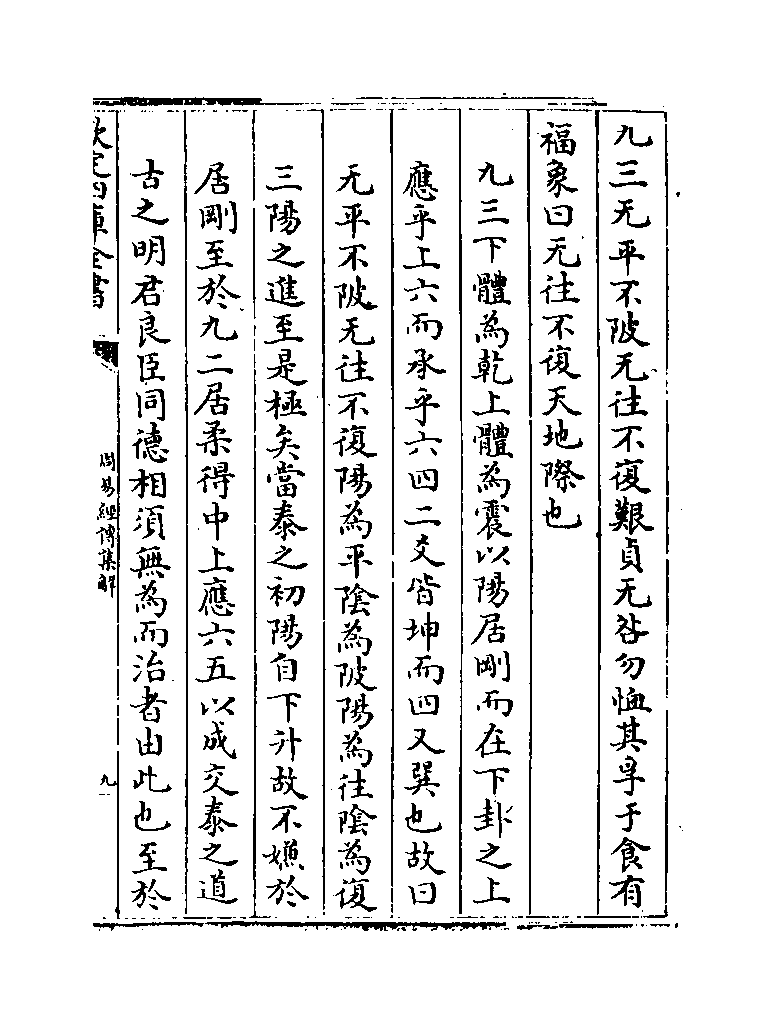 九三无平不陂无往不復艱貞无咎勿恤其孚于食有
福象曰无往不復天地際也
九三下體為乾上體為震以陽居剛而在下卦之上
應乎上六而承乎六四二爻皆坤而四又巽也故曰
无平不陂无往不復陽為平陰為陂陽為往陰為復
三陽之進至是極矣當泰之初陽自下升故不嫌於
居剛至於九二居柔得中上應六五以成交泰之道
古之明君良臣同德相須無為而治者由此也至於
欽定四庫全書
周易經傳集解
九